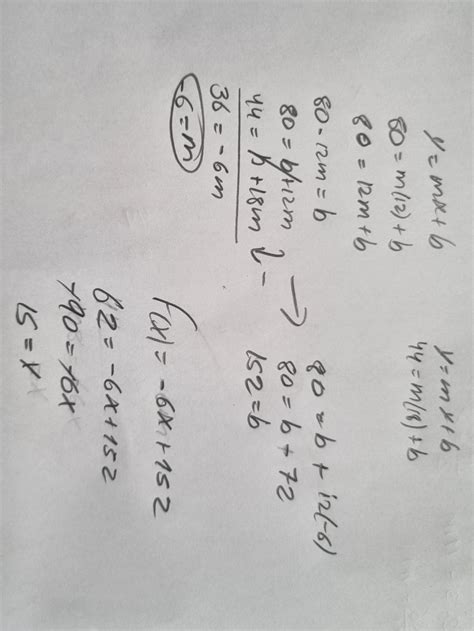 y=mx+b
80=m(12)+b
80=12m+b
80-12m=b
80=b+12m
44=b+18m
36=-6m
-6=m
y=mx+b
44=m(18)+b
80=b+12(-6)
80=b+72
152=b
f(x)=-6x+152
62=-6x+152
15=x